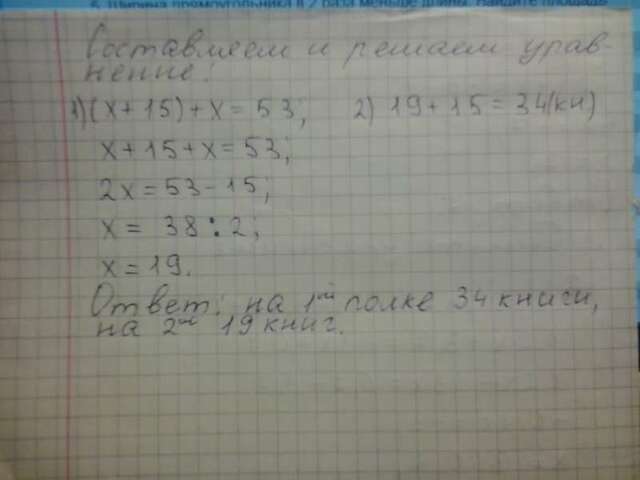 6. Ширина прямоугольника в 2 раза меньше длины. Найдите площадь
Составляем и решаем урав-
нение:
1) (x + 15) + x = 53; 2) 19 + 15 = 34 (кн)
x + 15 + x = 53;
2x = 53 - 15;
x = 38 : 2;
x = 19.
Ответ: на 1ой полке 34 книги,
на 2ой 19 книг.